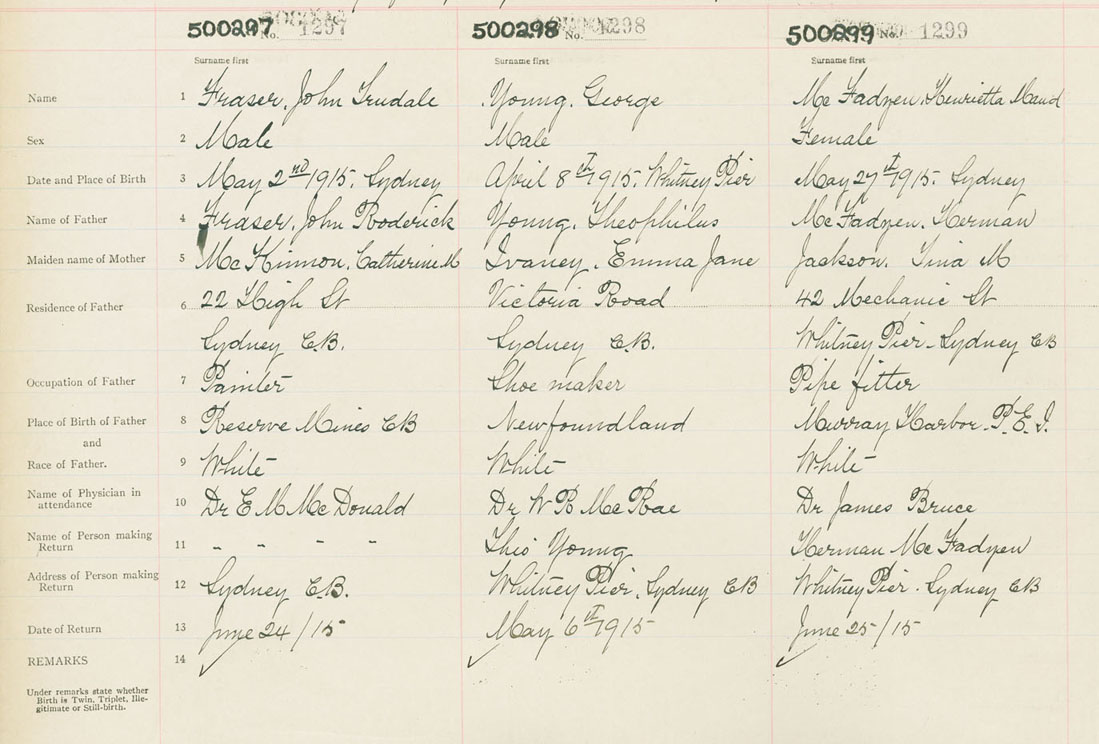 500297 No. 1297
500298 No. 1298
500299 No. 1299
Surname first
Surname first
Surname first
Name 1 Fraser, John Trudale
Young, George
Mc Fadyen, Henrietta Maud
Sex 2 Male
Male
Female
Date and Place of Birth 3 May 2nd 1915. Sydney
April 8th 1915. Whitney Pier
May 27th 1915. Sydney
Name of Father 4 Fraser, John Roderick
Young, Theophilus
Mc Fadyen, Herman
Maiden name of Mother 5 Mc Kinnon, Catherine M
Ivaney, Emma Jane
Jackson, Tina M
Residence of Father 6 22 High St
Victoria Road
42 Mechanic St
Sydney C.B.
Sydney C.B.
Whitney Pier - Sydney CB
Occupation of Father 7 Painter
Shoe maker
Pipe fitter
Place of Birth of Father 8 Reserve Mines CB
Newfoundland
Murray Harbor. P.E.I.
and
Race of Father. 9 White
White
White
Name of Physician in attendance 10 Dr E M Mc Donald
Dr W R Mc Rae
Dr James Bruce
Name of Person making Return 11 - - - -
Theo Young
Herman Mc Fadyen
Address of Person making Return 12 Sydney C.B.
Whitney Pier, Sydney CB
Whitney Pier - Sydney CB
Date of Return 13 June 24/15
May 6th 1915
June 25/15
REMARKS 14
Under remarks state whether
Birth is Twin, Triplet, Ille-
gitimate or Still-birth.